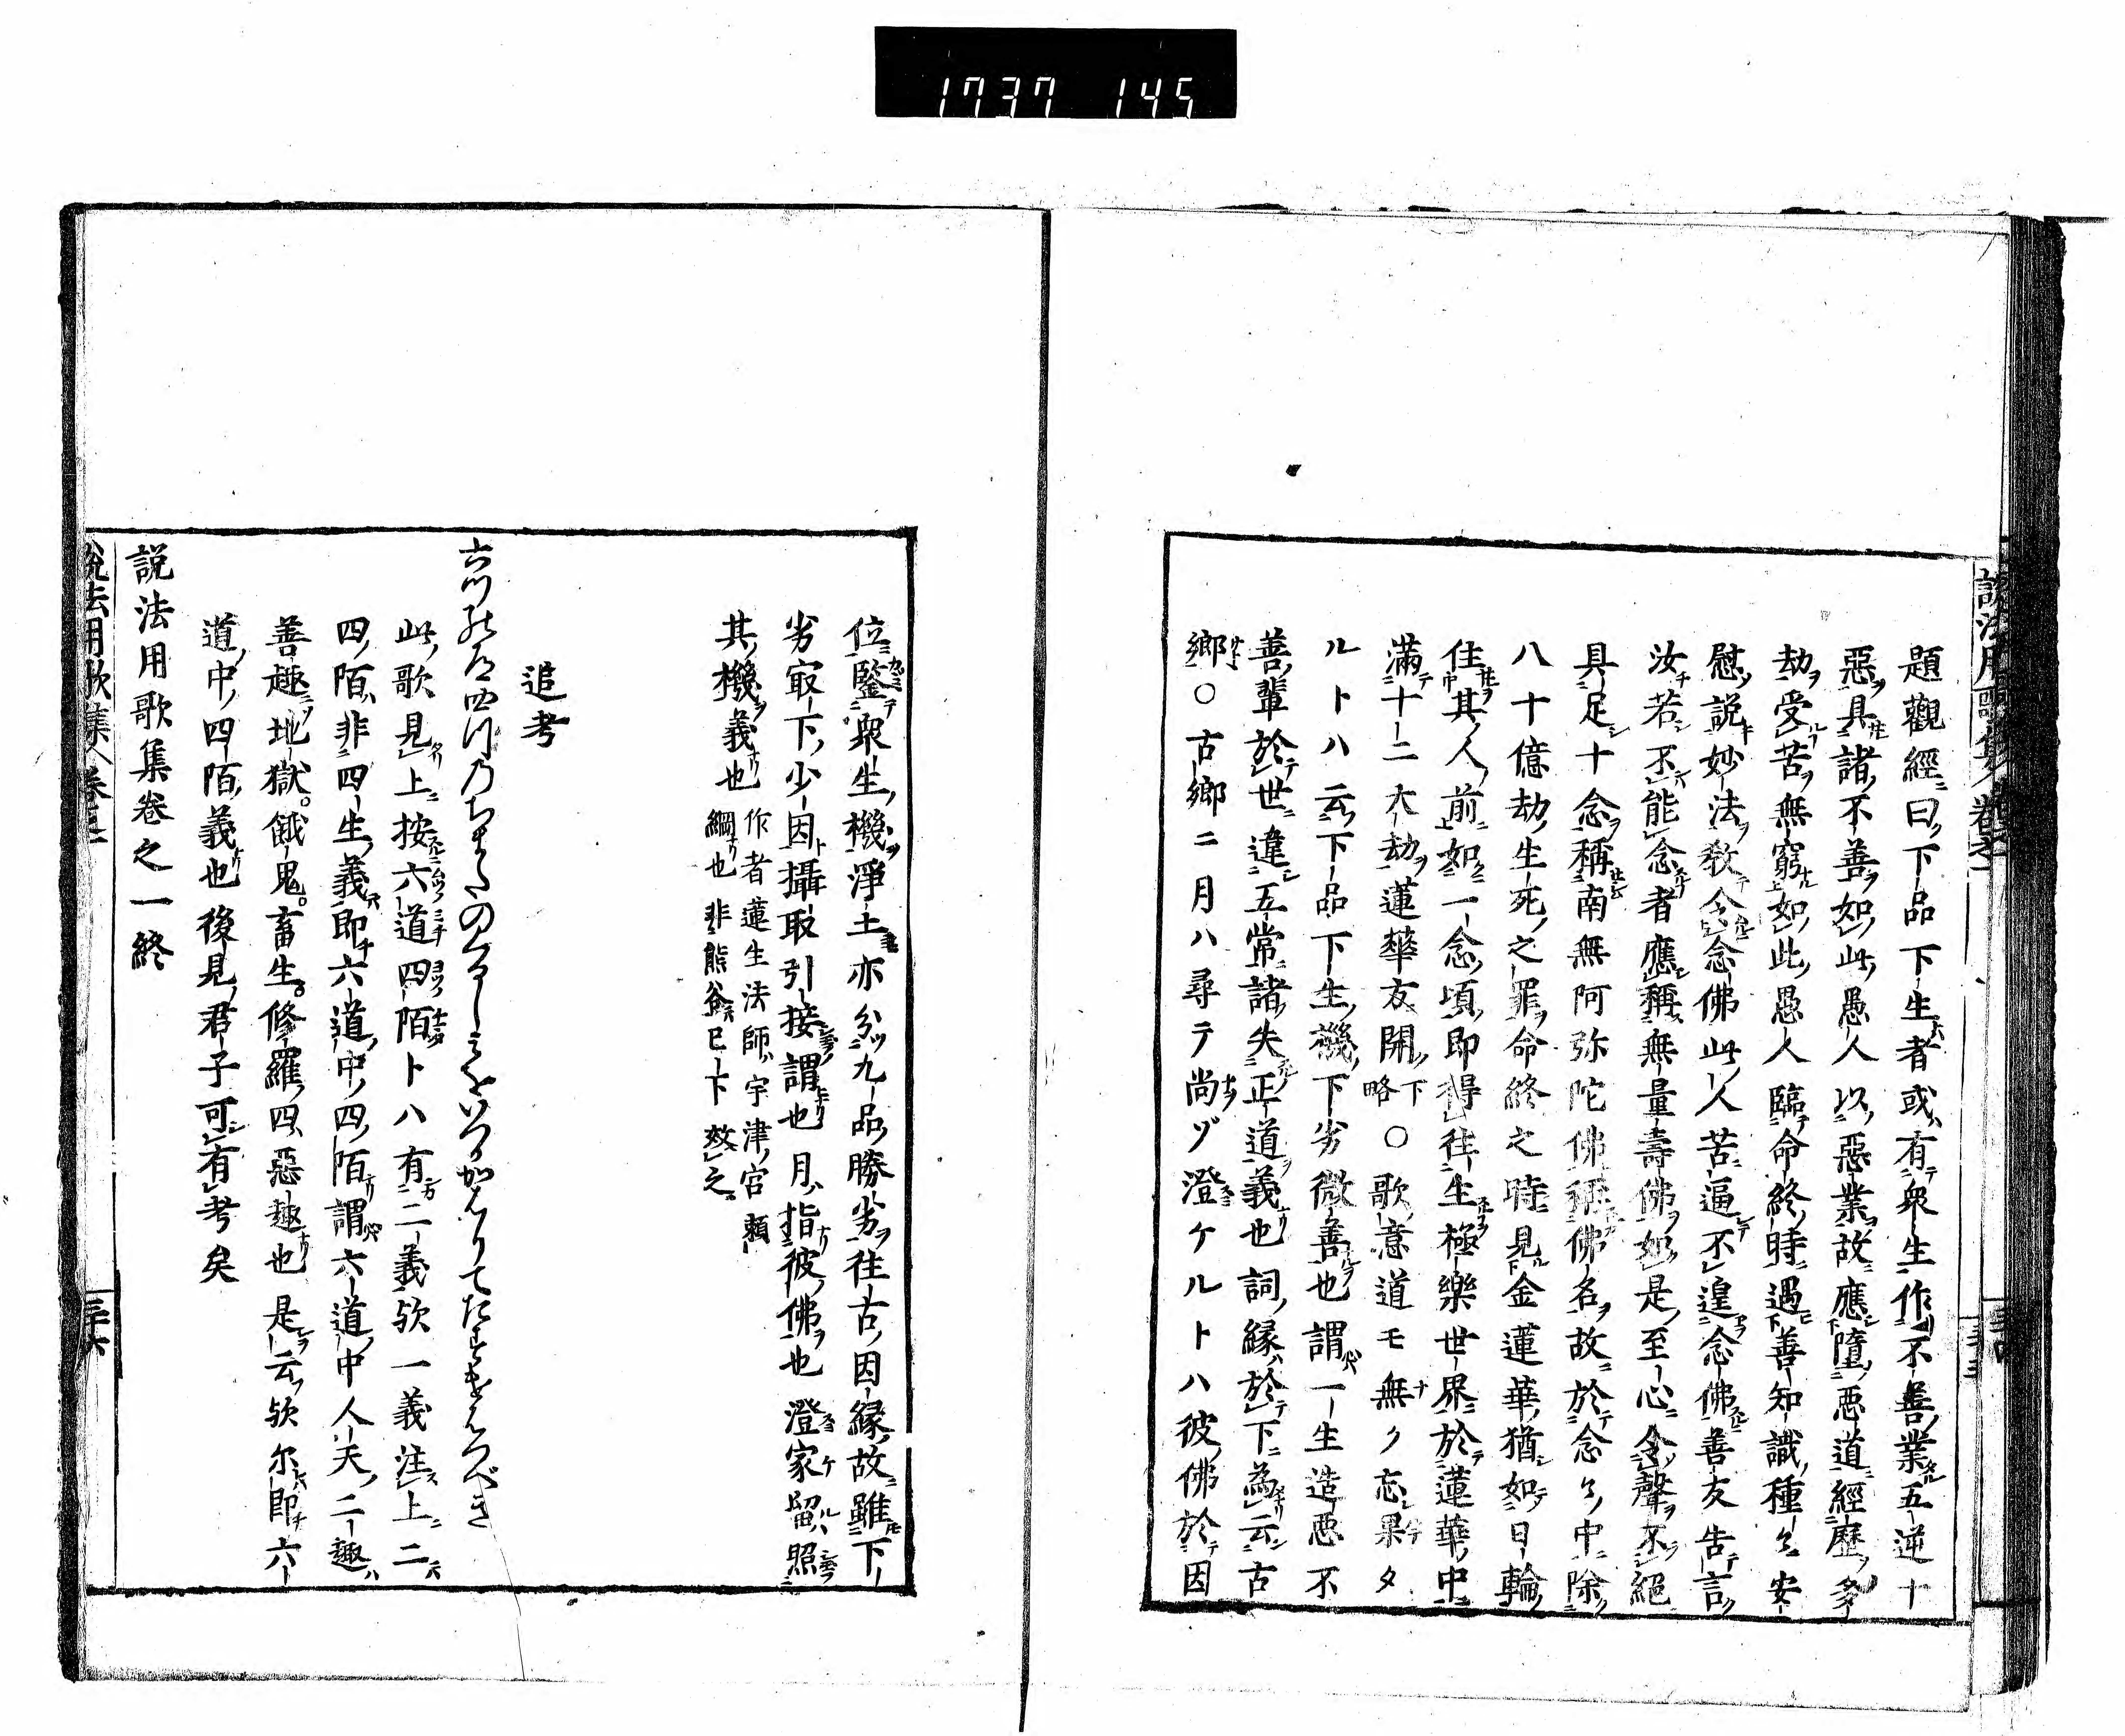 1737 145
題觀經曰下品下生者或有衆生作不善業五逆十
惡具諸不善如此愚人以惡業故應墮惡道經歷多
劫受苦無窮如此愚人臨命終時遇善知識種々安
慰説妙法教令念佛此人苦逼不遑念佛善友告言
汝若不能念者應稱無量壽佛如是至心令聲不絕
具足十念稱南無阿弥陀佛稱佛名故於念々中除
八十億劫生死之罪命終之時見金蓮華猶如日輪
住其人前如一念頃即得往生極樂世界於蓮華中
滿十二大劫蓮華友開下略○歌意道モ無ク忘果タ
ルトハ云下品下生機下劣微善也謂一生造悪不
善輩於世違五常諸失正道義也詞縁於下為云古
郷○古郷ニ月ハ尋テ尚ヅ澄ケルトハ彼佛於因
位鑒衆生機淨土亦分九品勝劣往古因縁故雖下
劣㝡下少因攝取引接謂也月指彼佛也澄家留照
其機義也
作者蓮生法師宇津宮頼
綱也非熊谷已下效之
追考
此歌見上按六道四陌トハ有二義欤一義注上二
四陌非四生義即六道中四陌謂六道中人天二趣
善趣地獄。餓鬼。畜生。修羅四惡趣也是云欤尔即六
道中四陌義也後見君子可有考矣
説法用歌集卷之一終
説法用歌集 卷之一
三十六